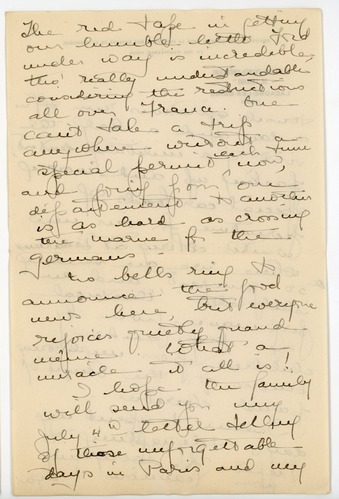 The red tape in getting
our humble little Ford
under way is incredible,
tho' really understandable
considering the restrictions
all over France. One
can't take a trip
anywhere without a
special permit each time now,
and going from one
department to another
is as hard as crossing
the Marne for the
Germans –
No bells ring to
announce the good
news here, but everyone
rejoices quietly quand
même. What a
miracle it all is!
I hope the family
will send you my
July 4th letter telling
of those unforgettable
days in Paris and my